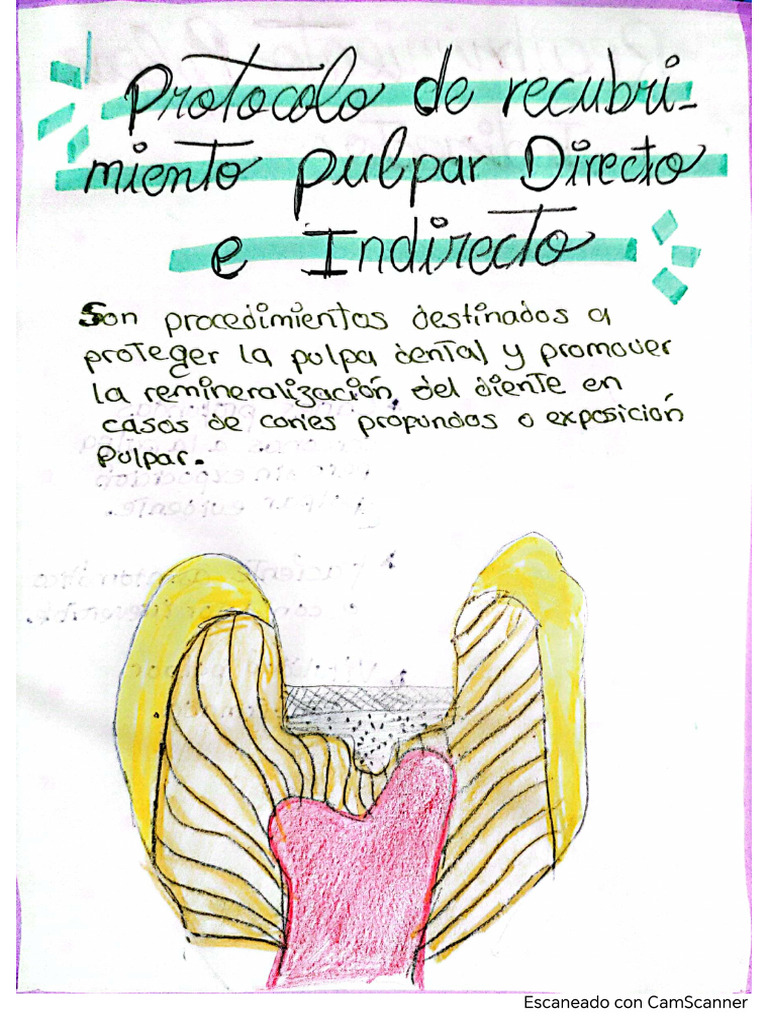 Protocolo de recubri-
miento pulpar Directo
e Indirecto
Son procedimientos destinados a
proteger la pulpa dental y promover
la remineralización del diente en
casos de caries profundas o exposición
Pulpar.
Escaneado con CamScanner